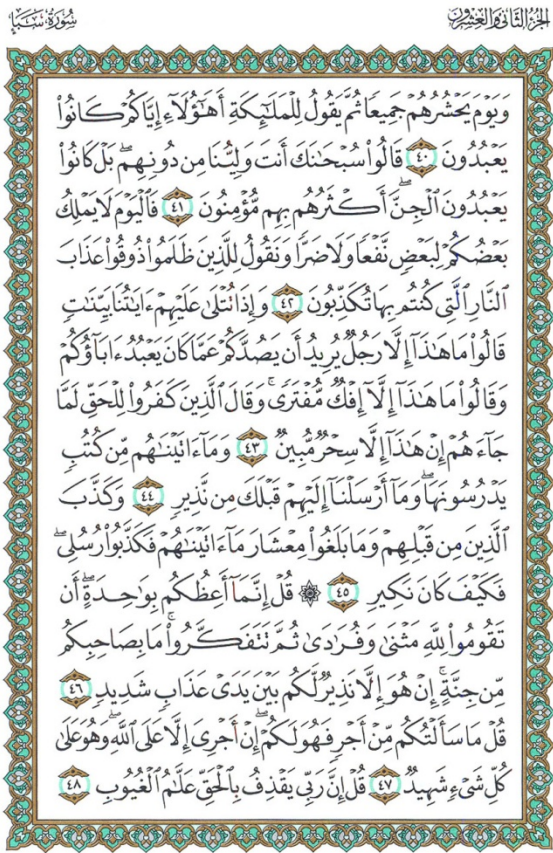 الجزء الثاني والعشرون
سُورَةُ سَبَإٍ
وَيَوْمَ يَحْشُرُهُمْ جَمِيعًا ثُمَّ يَقُولُ لِلْمَلَٰٓئِكَةِ أَهَٰٓؤُلَآءِ إِيَّاكُمْ كَانُوا۟
يَعْبُدُونَ ٤٠ قَالُوا۟ سُبْحَٰنَكَ أَنتَ وَلِيُّنَا مِن دُونِهِم ۖ بَلْ كَانُوا۟
يَعْبُدُونَ ٱلْجِنَّ ۖ أَكْثَرُهُم بِهِم مُّؤْمِنُونَ ٤١ فَٱلْيَوْمَ لَا يَمْلِكُ
بَعْضُكُمْ لِبَعْضٍ نَّفْعًا وَلَا ضَرًّا وَنَقُولُ لِلَّذِينَ ظَلَمُوا۟ ذُوقُوا۟ عَذَابَ
ٱلنَّارِ ٱلَّتِى كُنتُم بِهَا تُكَذِّبُونَ ٤٢ وَإِذَا تُتْلَىٰ عَلَيْهِمْ ءَايَٰتُنَا بَيِّنَٰتٍ
قَالُوا۟ مَا هَٰذَآ إِلَّا رَجُلٌ يُرِيدُ أَن يَصُدَّكُمْ عَمَّا كَانَ يَعْبُدُ ءَابَآؤُكُمْ
وَقَالُوا۟ مَا هَٰذَآ إِلَّآ إِفْكٌ مُّفْتَرًى ۚ وَقَالَ ٱلَّذِينَ كَفَرُوا۟ لِلْحَقِّ لَمَّا
جَآءَهُمْ إِنْ هَٰذَآ إِلَّا سِحْرٌ مُّبِينٌ ٤٣ وَمَآ ءَاتَيْنَٰهُم مِّن كُتُبٍ
يَدْرُسُونَهَا ۖ وَمَآ أَرْسَلْنَآ إِلَيْهِمْ قَبْلَكَ مِن نَّذِيرٍ ٤٤ وَكَذَّبَ
ٱلَّذِينَ مِن قَبْلِهِمْ وَمَا بَلَغُوا۟ مِعْشَارَ مَآ ءَاتَيْنَٰهُمْ فَكَذَّبُوا۟ رُسُلِى ۖ
فَكَيْفَ كَانَ نَكِيرِ ٤٥ ۞ قُلْ إِنَّمَآ أَعِظُكُم بِوَٰحِدَةٍ ۖ أَن
تَقُومُوا۟ لِلَّهِ مَثْنَىٰ وَفُرَٰدَىٰ ثُمَّ تَتَفَكَّرُوا۟ ۚ مَا بِصَاحِبِكُم
مِّن جِنَّةٍ ۚ إِنْ هُوَ إِلَّا نَذِيرٌ لَّكُم بَيْنَ يَدَىْ عَذَابٍ شَدِيدٍ ٤٦
قُلْ مَا سَأَلْتُكُم مِّنْ أَجْرٍ فَهُوَ لَكُمْ ۖ إِنْ أَجْرِىَ إِلَّا عَلَى ٱللَّهِ ۖ وَهُوَ عَلَىٰ
كُلِّ شَىْءٍ شَهِيدٌ ٤٧ قُلْ إِنَّ رَبِّى يَقْذِفُ بِٱلْحَقِّ عَلَّٰمُ ٱلْغُيُوبِ ٤٨